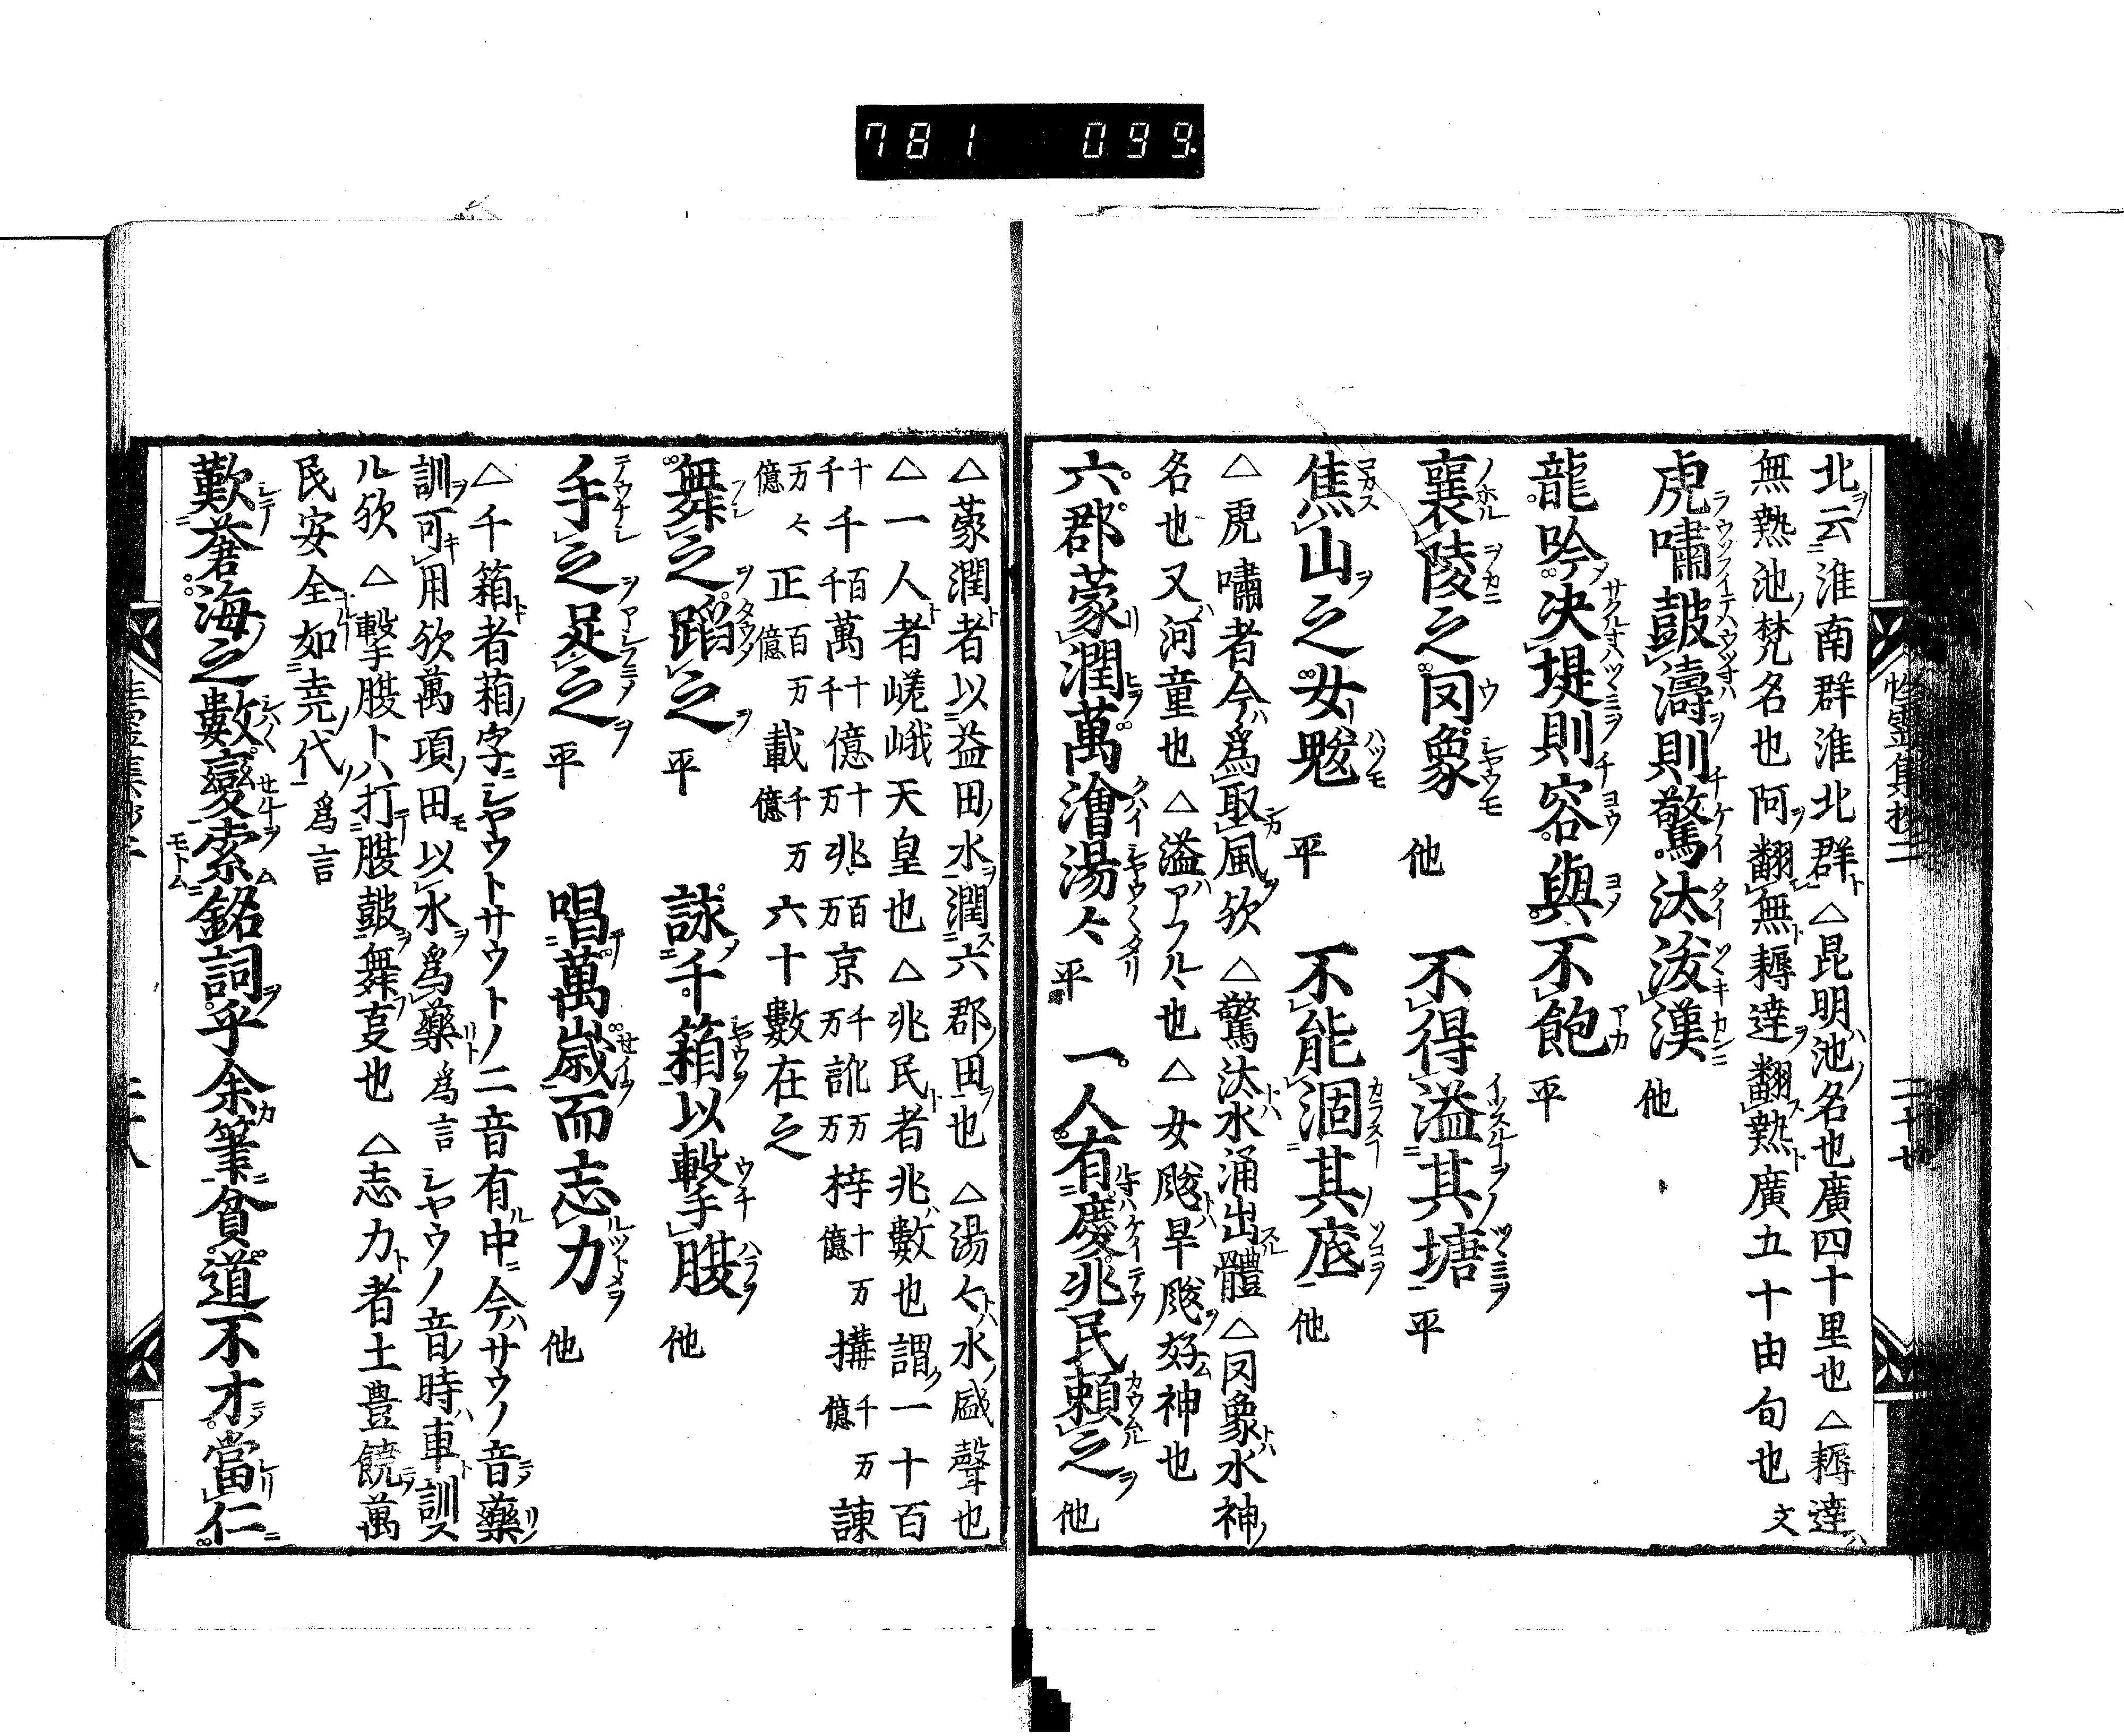 781 099.
北云淮南群淮北群△昆明池名也廣四十里也△耨達
無熱池梵名也阿翻無耨達翻熱廣五十由旬也文
虎嘯皷濤則驚汰汥漢他
龍吟决堤則容與不飽平
襄陵之罔象他 不得溢其塘平
焦山之女魃平 不能涸其底他
△虎嘯者今爲取風欤△驚汰水涌出體△罔象水神
名也又河童也△溢アフル也△女魃旱魃好神也
六郡蒙潤萬澮湯々平 一人有慶兆民賴之他
△蒙潤者以益田水潤六郡田也△湯々水盛聲也
△一人者嵯峨天皇也△兆民者兆數也謂一十百
千十千百千萬十千億十万兆百万京千万訛万万梓十万億搆千万億諌
万々億正百万億載千万億六十數在之
舞之蹈之平 詠千箱以擊腹他
手之足之平 唱萬歳而志力他
△千箱者箱字シヤウトサウトノ二音有中今サウノ音藥
訓可用欤萬項田以水爲藥爲言シヤウノ音時車訓ス
ル欤△擊腹トハ打腹皷舞㕝也△志力者土豊饒萬
民安全如尭代爲言
歎蒼海之數變索銘詞乎余筆貧道不才當仁